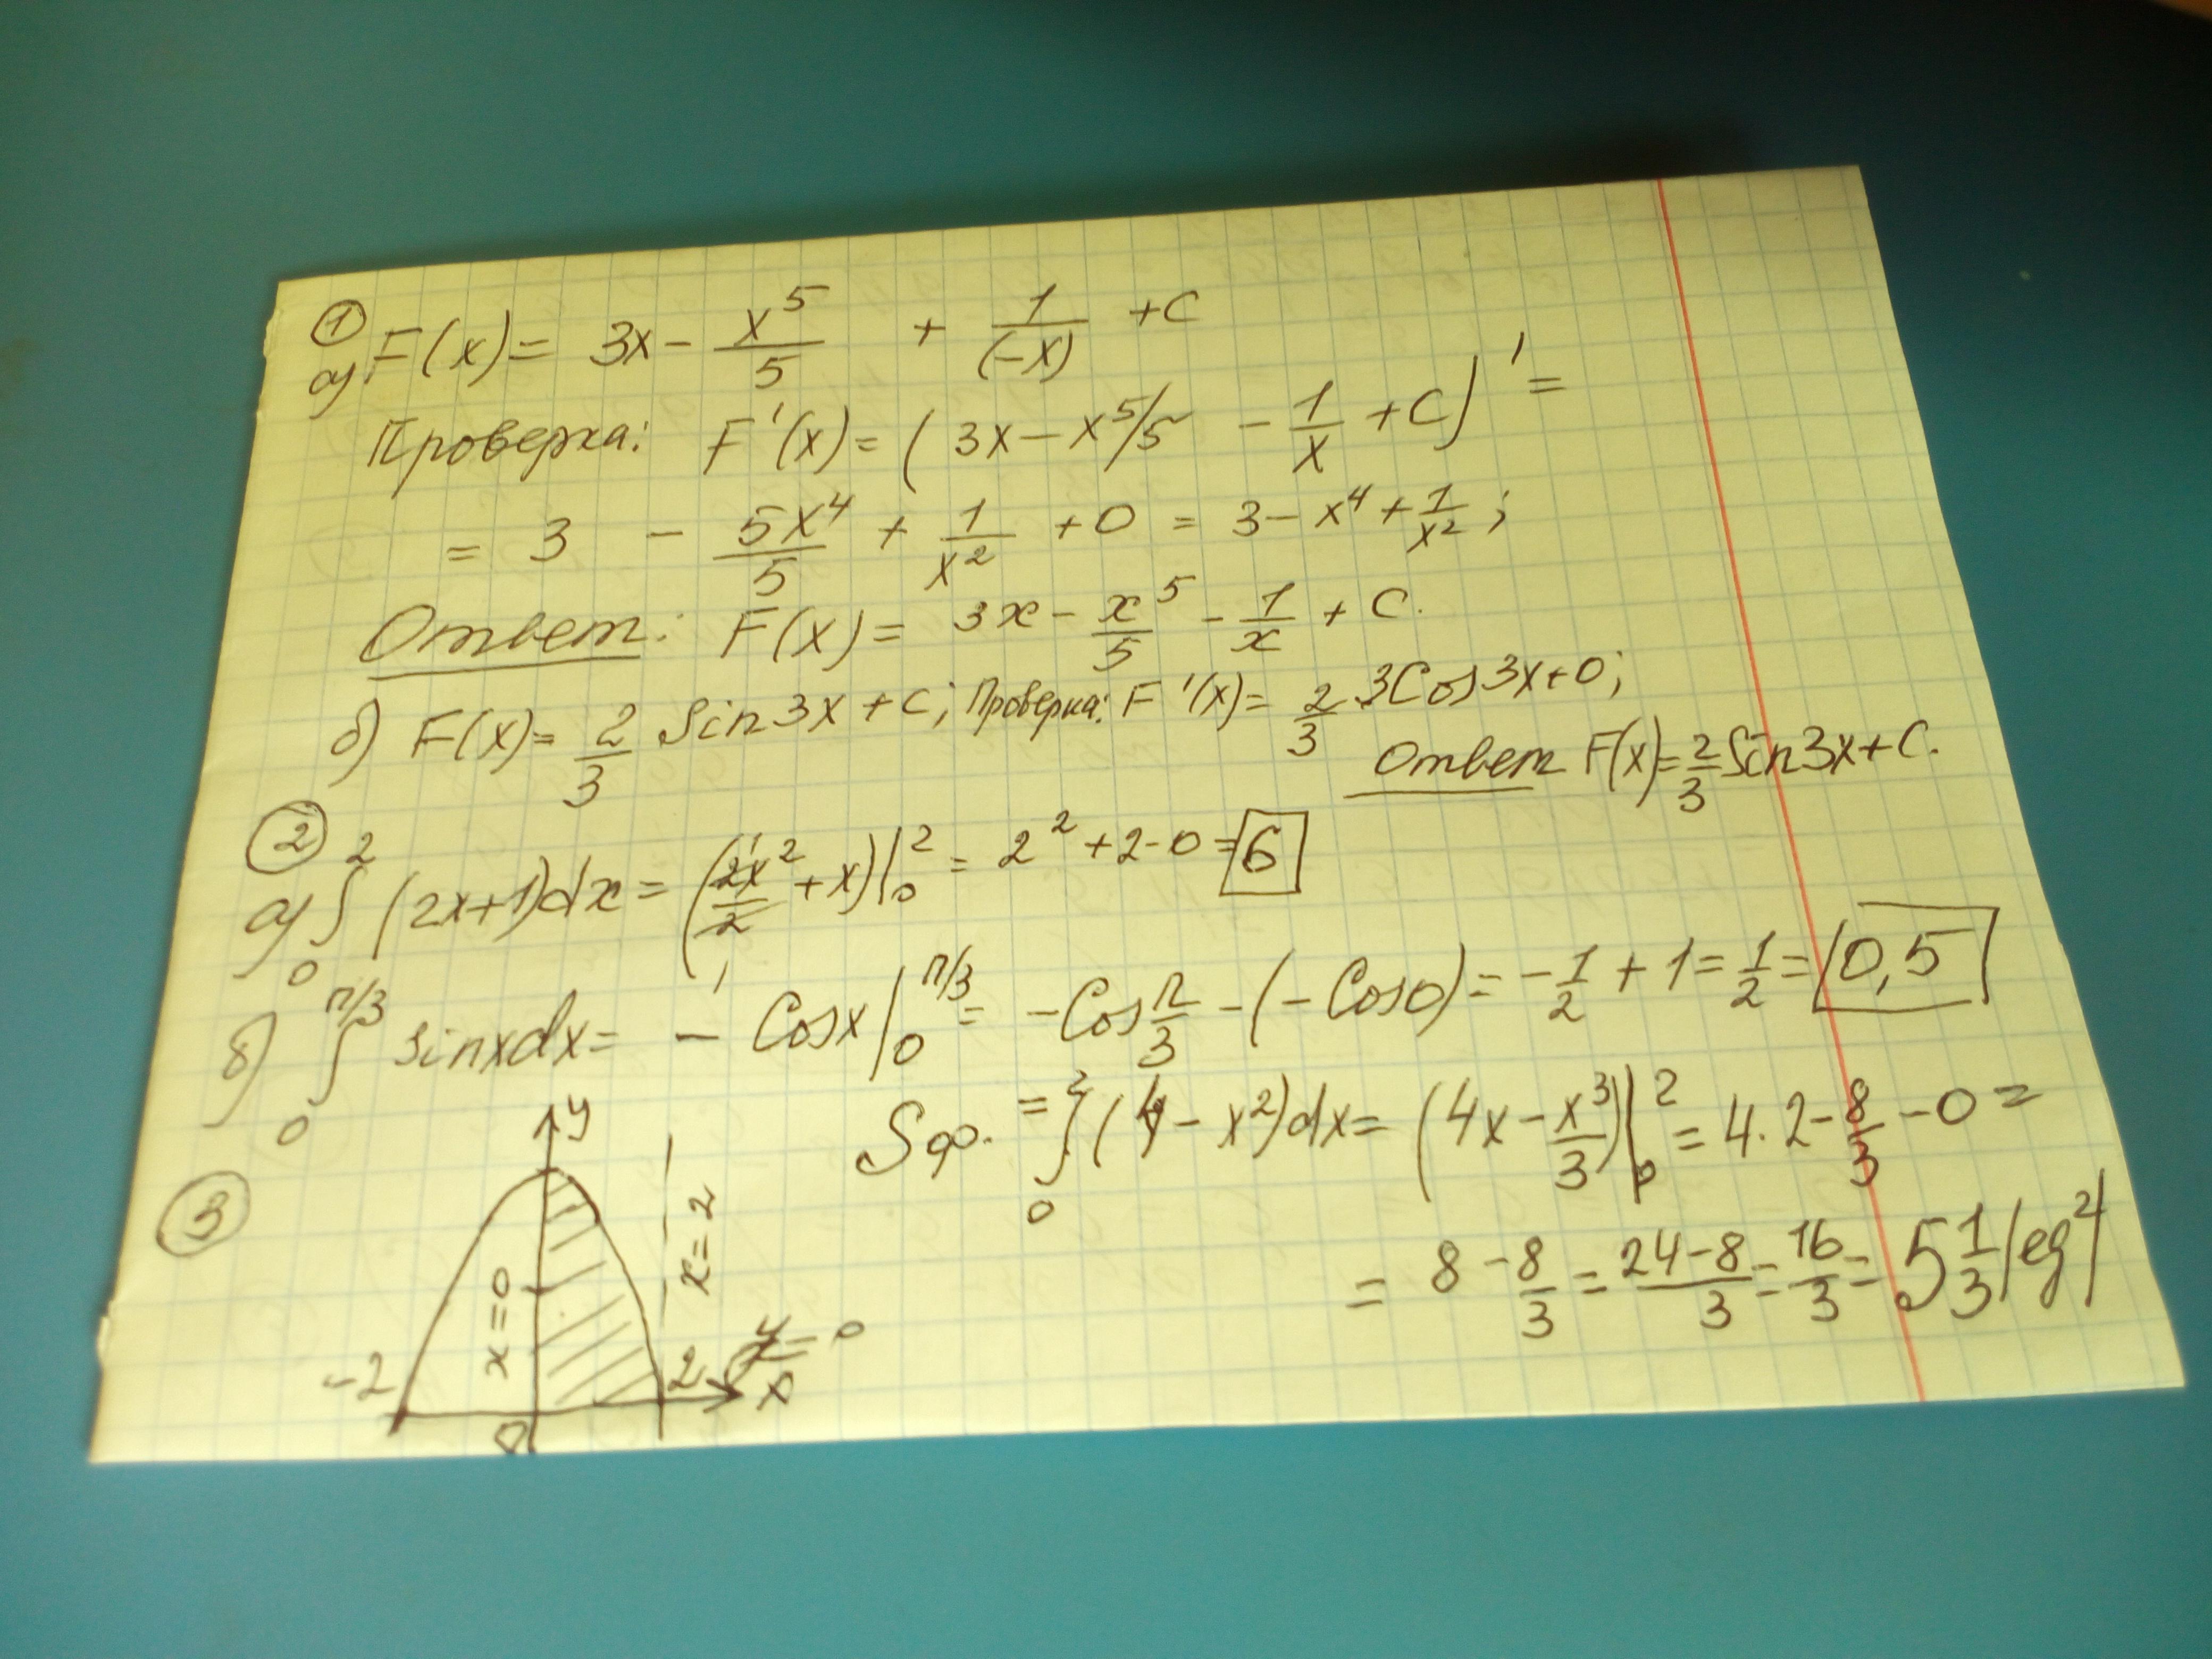 ①
а) F(x) = 3x - x⁵/5 + 1/(-x) + C
Проверка: F'(x) = (3x - x⁵/5 - 1/x + C)' =
= 3 - 5x⁴/5 + 1/x² + 0 = 3 - x⁴ + 1/x²;
Ответ: F(x) = 3x - x⁵/5 - 1/x + C.
б) F(x) = 2/3 Sin3x + C; Проверка: F'(x) = 2/3 · 3Cos3x + 0;
Ответ F(x) = 2/3 Sin3x + C.
②
а) ∫₀² (2x+1)dx = (2x²/2 + x)|₀² = 2² + 2 - 0 = 6
б) ∫₀^(π/3) sinxdx = - Cosx|₀^(π/3) = -Cos π/3 - (-Cos0) = -1/2 + 1 = 1/2 = 0,5
③
y
x=0
x=2
-2
0
2
y=0
x
Sф. = ∫₀² (4 - x²)dx = (4x - x³/3)|₀² = 4·2 - 8/3 - 0 =
= 8 - 8/3 = (24-8)/3 = 16/3 = 5 1/3 (ед²)